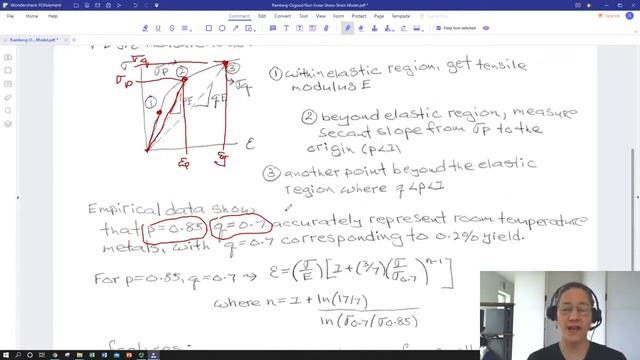 Wondershare PDFelement
Ramberg-Osgood Non-linear Stress-Strain Model.pdf *
File
Comment
Edit
Convert
View
Organize
Tools
Form
Protect
Keep tool selected
Ramberg-O... Model.pdf *
σ
σq
σp
②
③
σp
σq
①
pE
qE
ε
εp
εq
① within elastic region, get tensile
modulus E
② beyond elastic region, measure
secant slope from σp to the
origin (p<1)
③ another point beyond the elastic
region where q<p<1
Empirical data show
that p=0.85, q=0.7 accurately represent room temperature
metals, with q=0.7 corresponding to 0.2% yield.
For p=0.85, q=0.7 → ε=(σ/E)[1+(3/7)(σ/σ0.7)^n-1]
where n=1+ln(17/7)
ln(σ0.7/σ0.85)